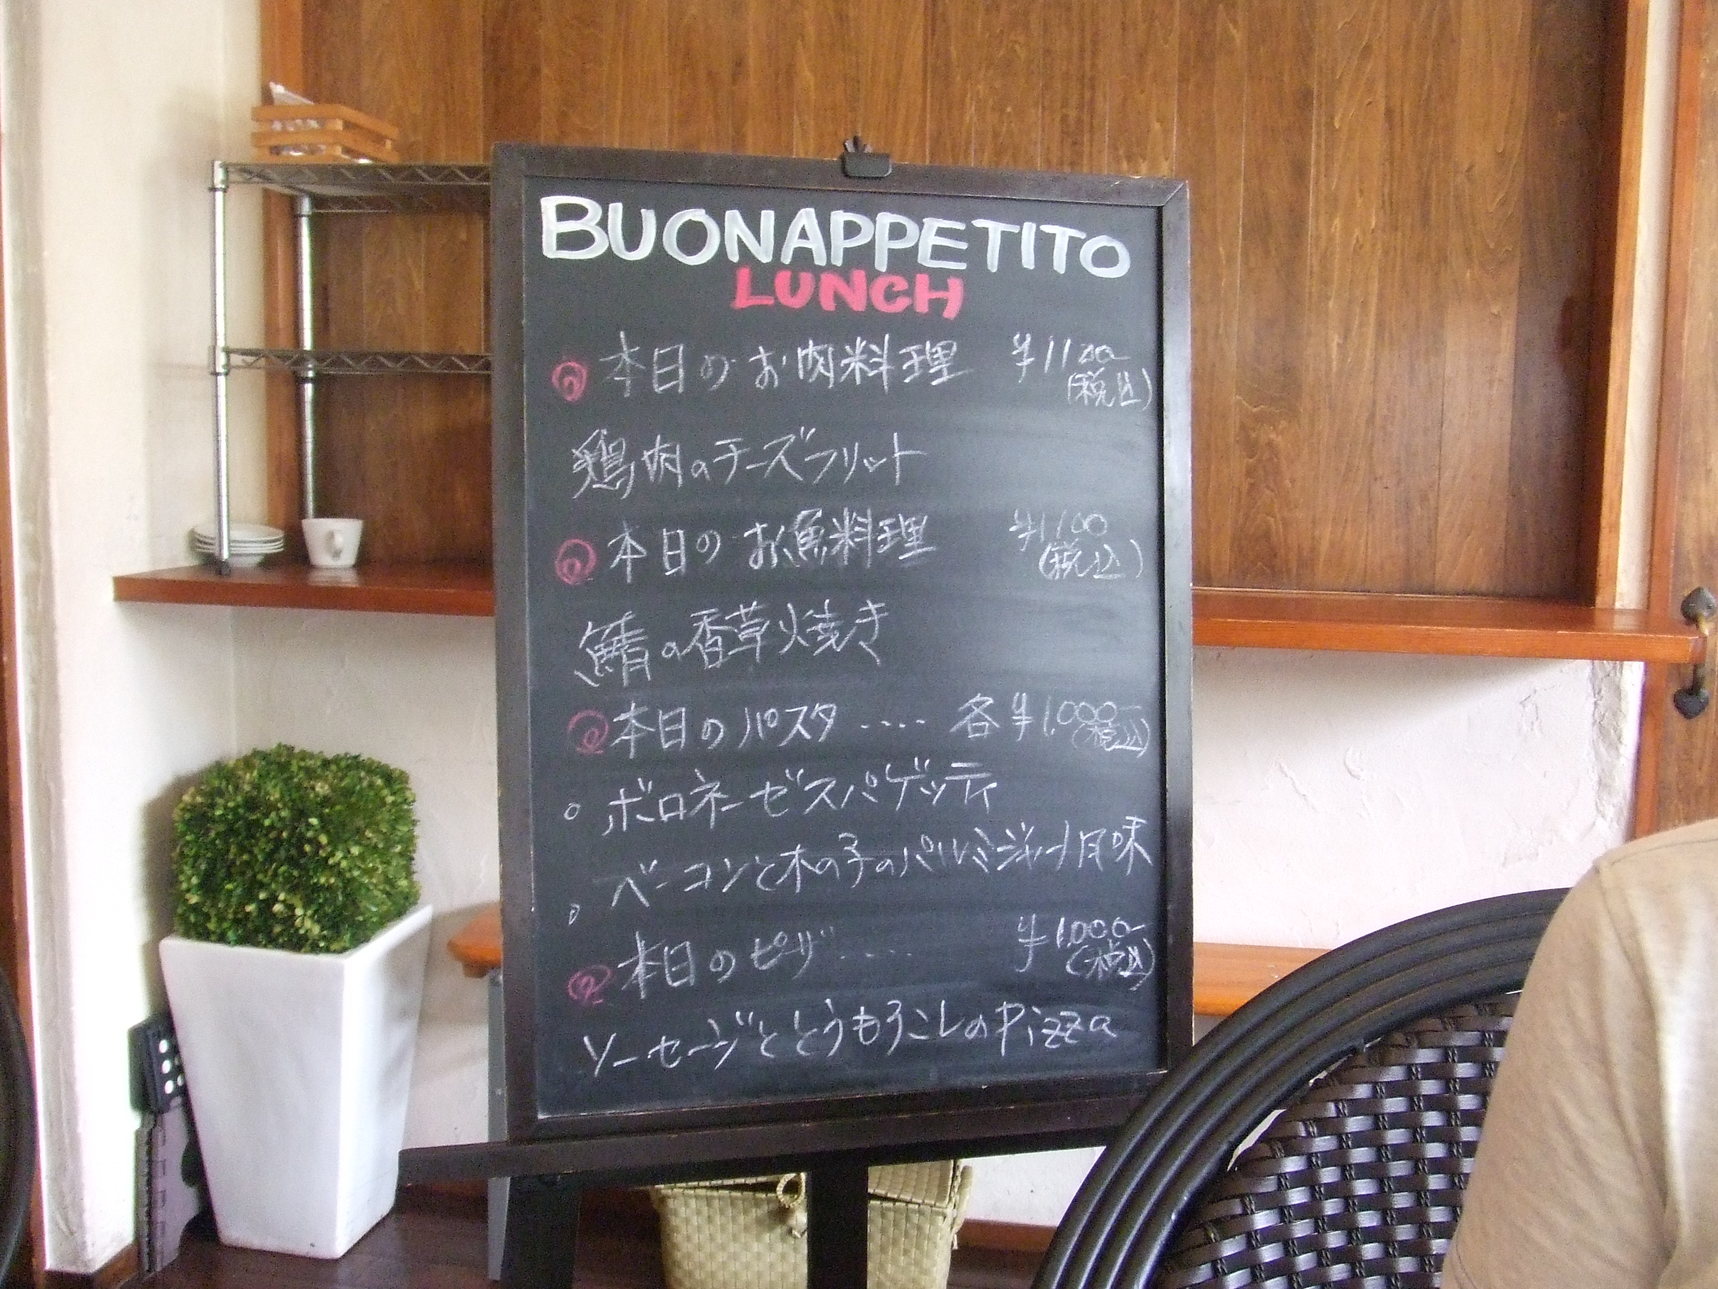 BUONAPPETITO
LUNCH
本日のお肉料理 ¥1100
(税込)
鶏肉のチーズフリット
本日のお魚料理 ¥1,100
(税込)
鯖の香草焼き
本日のパスタ .... 各¥1,000-
(税込)
。ボロネーゼスパゲッティ
。ベーコンと木の子のパルミジャーノ風味
本日のピザ ..... ¥1,000-
(税込)
ソーセージととうもろこしのPizza